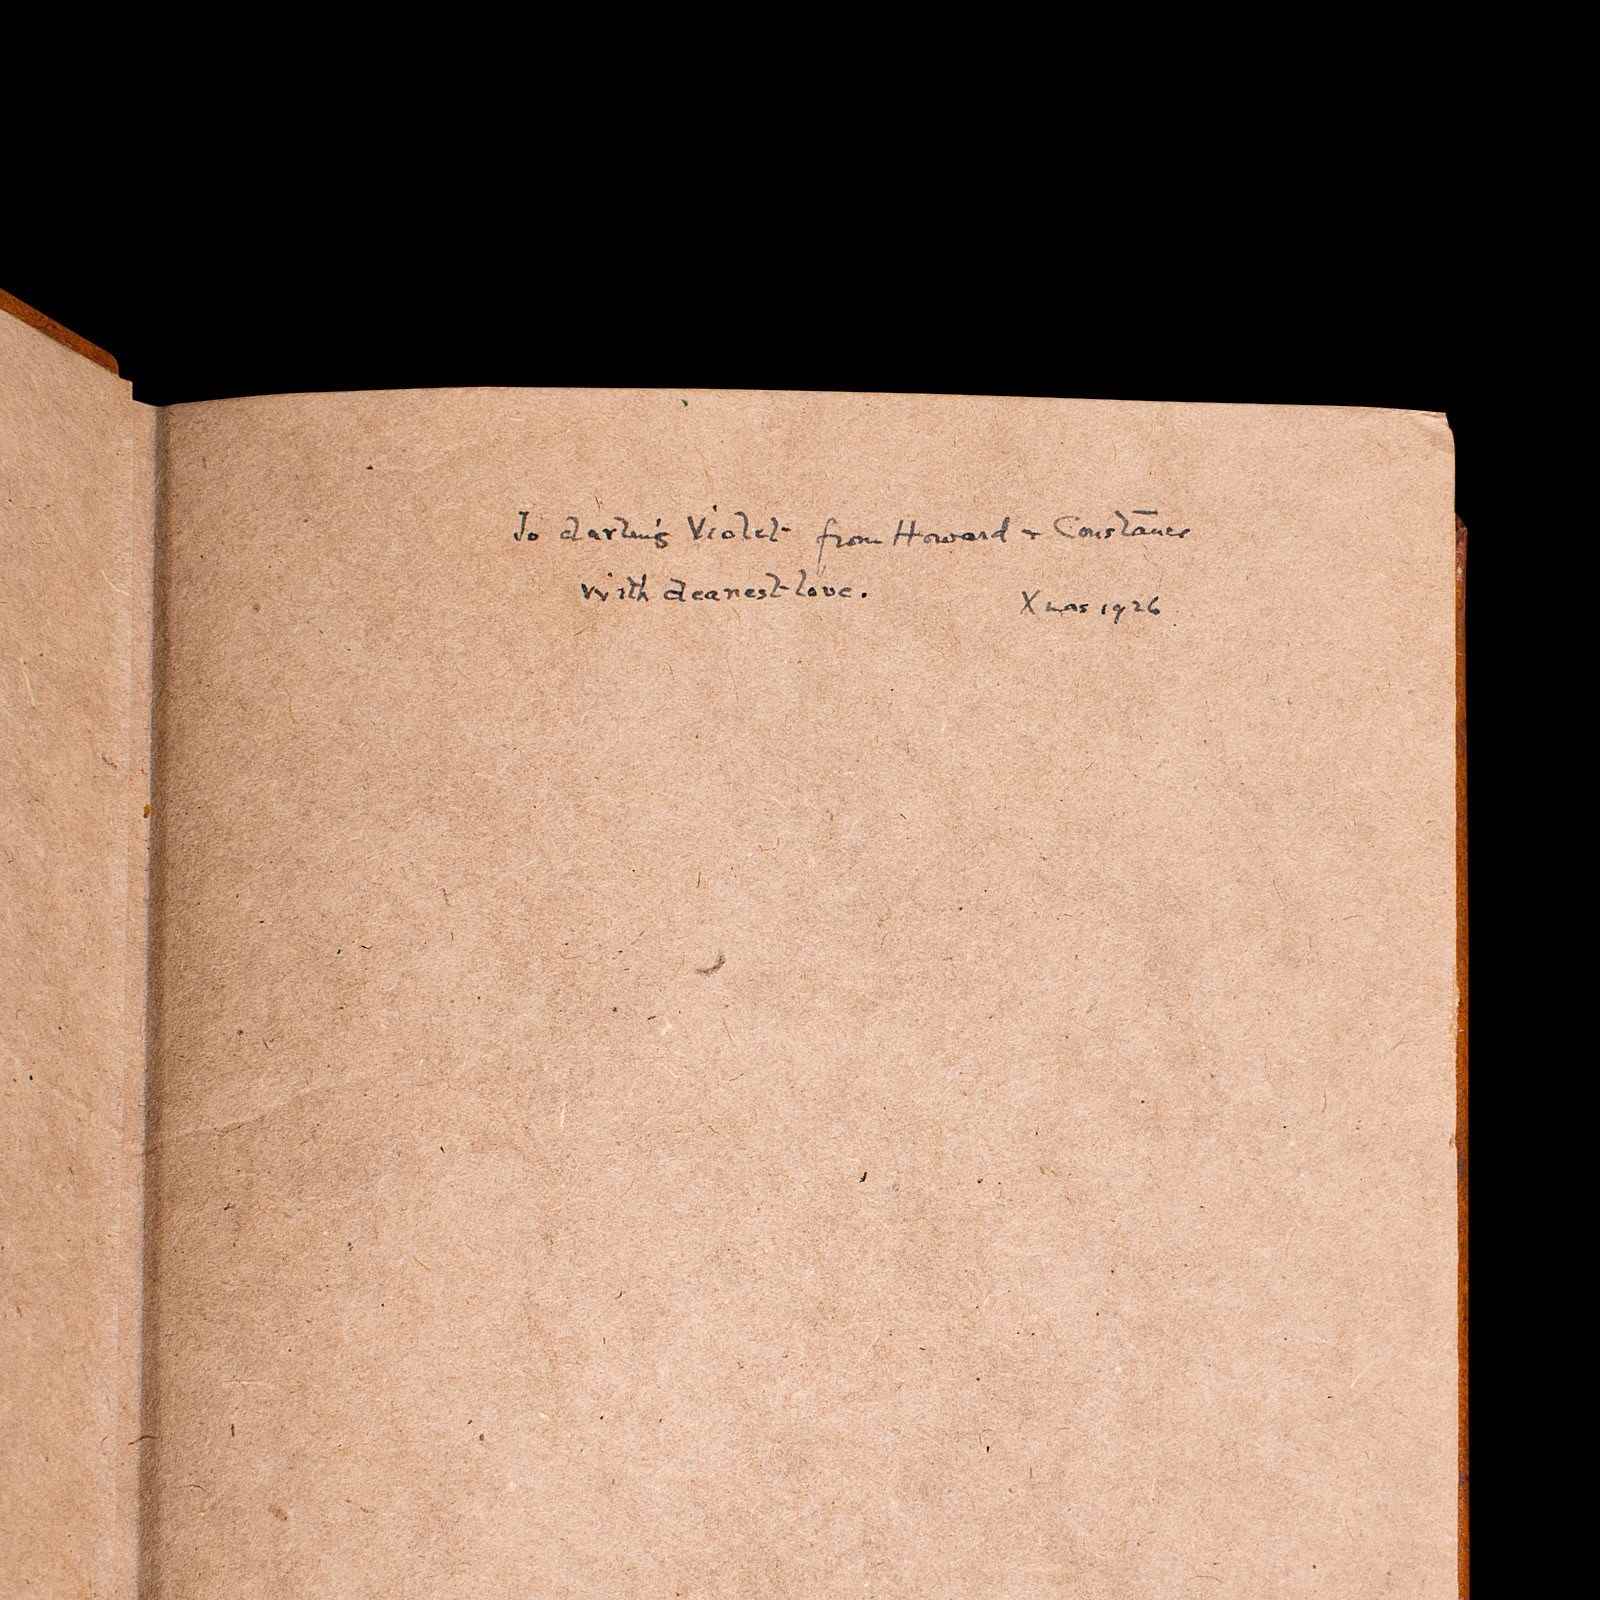 To darling Violet from Howard + Constance
with dearest love.
Xmas 1926